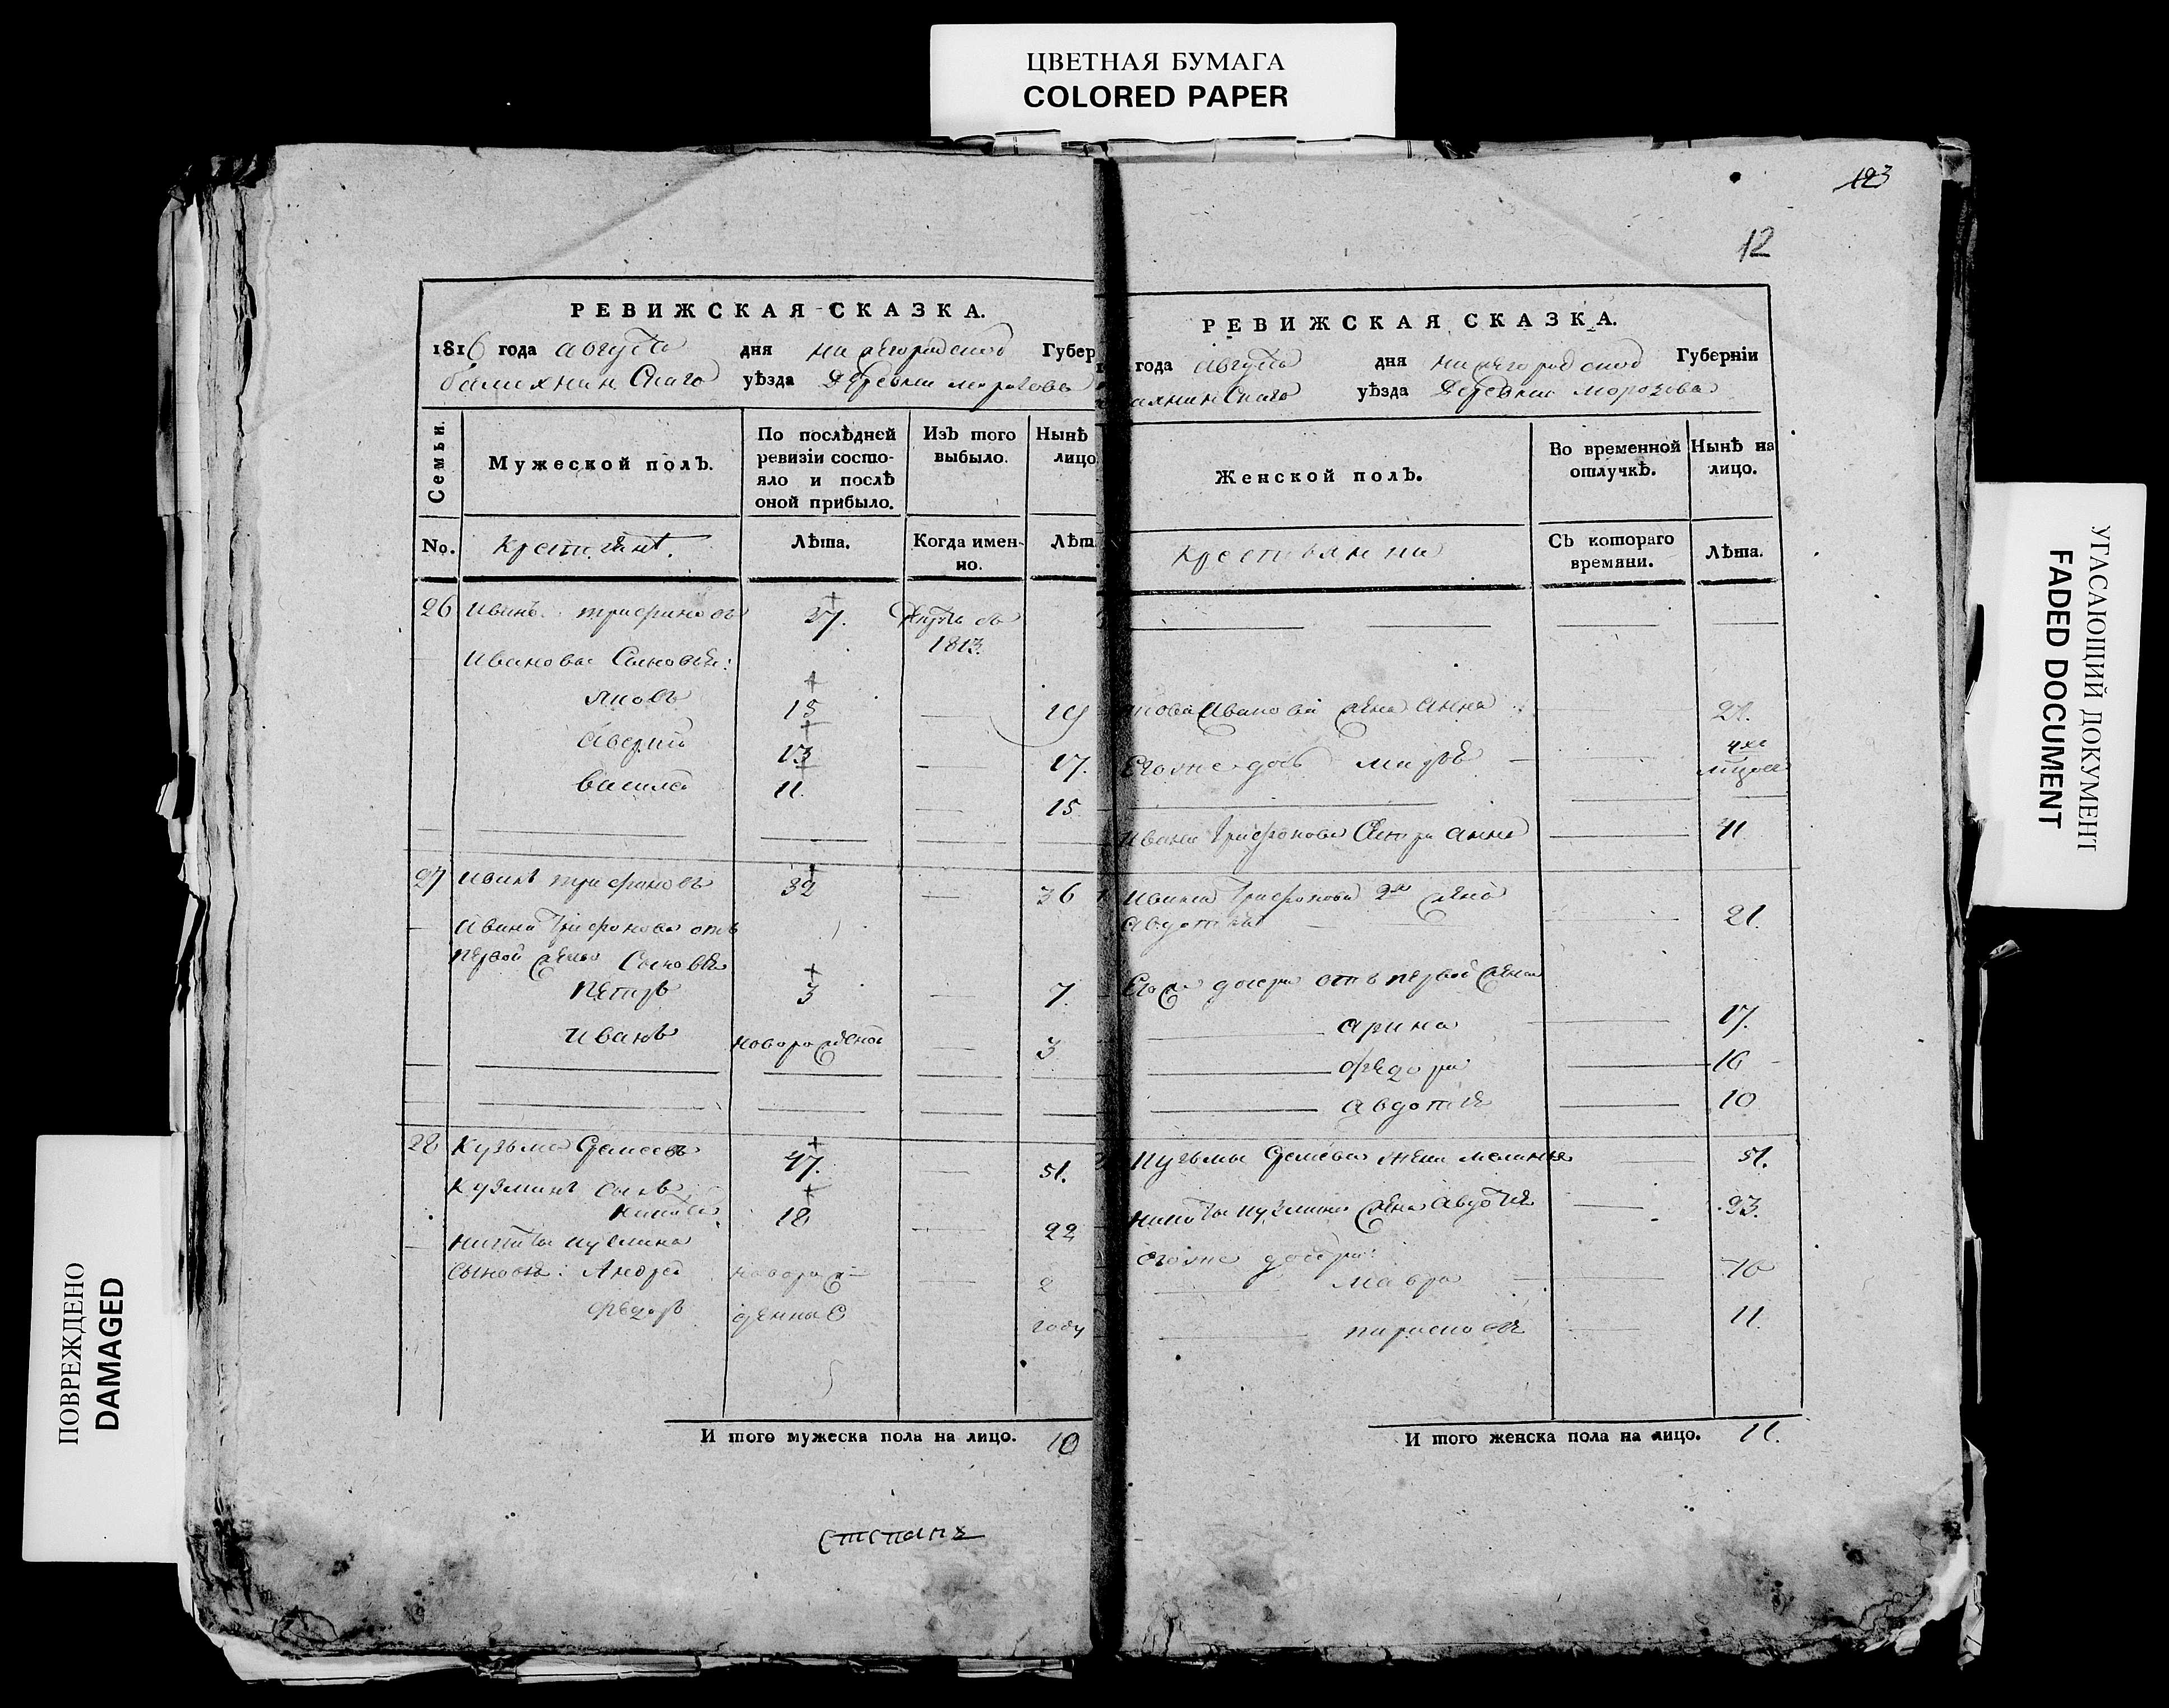 ЦВЕТНАЯ БУМАГА
COLORED PAPER
123
12
РЕВИЖСКАЯ СКАЗКА.
1816 года августа дня нижегородской Губер
балахнинскаго уѣзда Деревни морозова
Семьи.
Мужеской полъ.
По послѣдней ревизіи состояло и послѣ оной прибыло.
Изъ того выбыло.
Нынѣ лицо
No.
Крестьянѣ.
Лѣта.
Когда именно.
Лѣт
26 Иванъ трифоновъ 37. въ 1813.
Ивановы Сыновья:
яковъ 15 19
Аверий 13 17.
василей 11. 15
27 Иванъ трифоновъ 32 36
Ивана Трифонова отъ
первой жены Сыновья
петръ 3 7.
Иванъ новорожденой 3
28 Кузьма 47. 51.
Кузминъ сынъ
никита 18 22
никиты кузмина
Сыновья: Андрей новорож 2
федоръ денные году
И того мужеска пола на лицо. 10
Степанъ
РЕВИЖСКАЯ СКАЗКА.
года августа дня нижегородской Губерніи
ахнинскаго уѣзда Деревни морозова
Женской полъ.
Во временной отлучкѣ.
Нынѣ на лицо.
крестьянки
Съ котораго времяни.
Лѣта.
якова Иванова жена Анна 21.
Егоже дочь 4хъ
Ивана Трифонова анна 41.
Ивана Трифонова 2я жена
Авдотья 21.
Егож дочери отъ первой жены
арина 17.
федора 16
авдотья 10
кузьмы жена маланья 51.
никиты кузмина жена авдотья 33.
егоже дочери:
мавра 16
парасковья 11.
И того женска пола на лицо. 11.
ПОВРЕЖДЕНО
DAMAGED
УГАСАЮЩИЙ ДОКУМЕНТ
FADED DOCUMENT